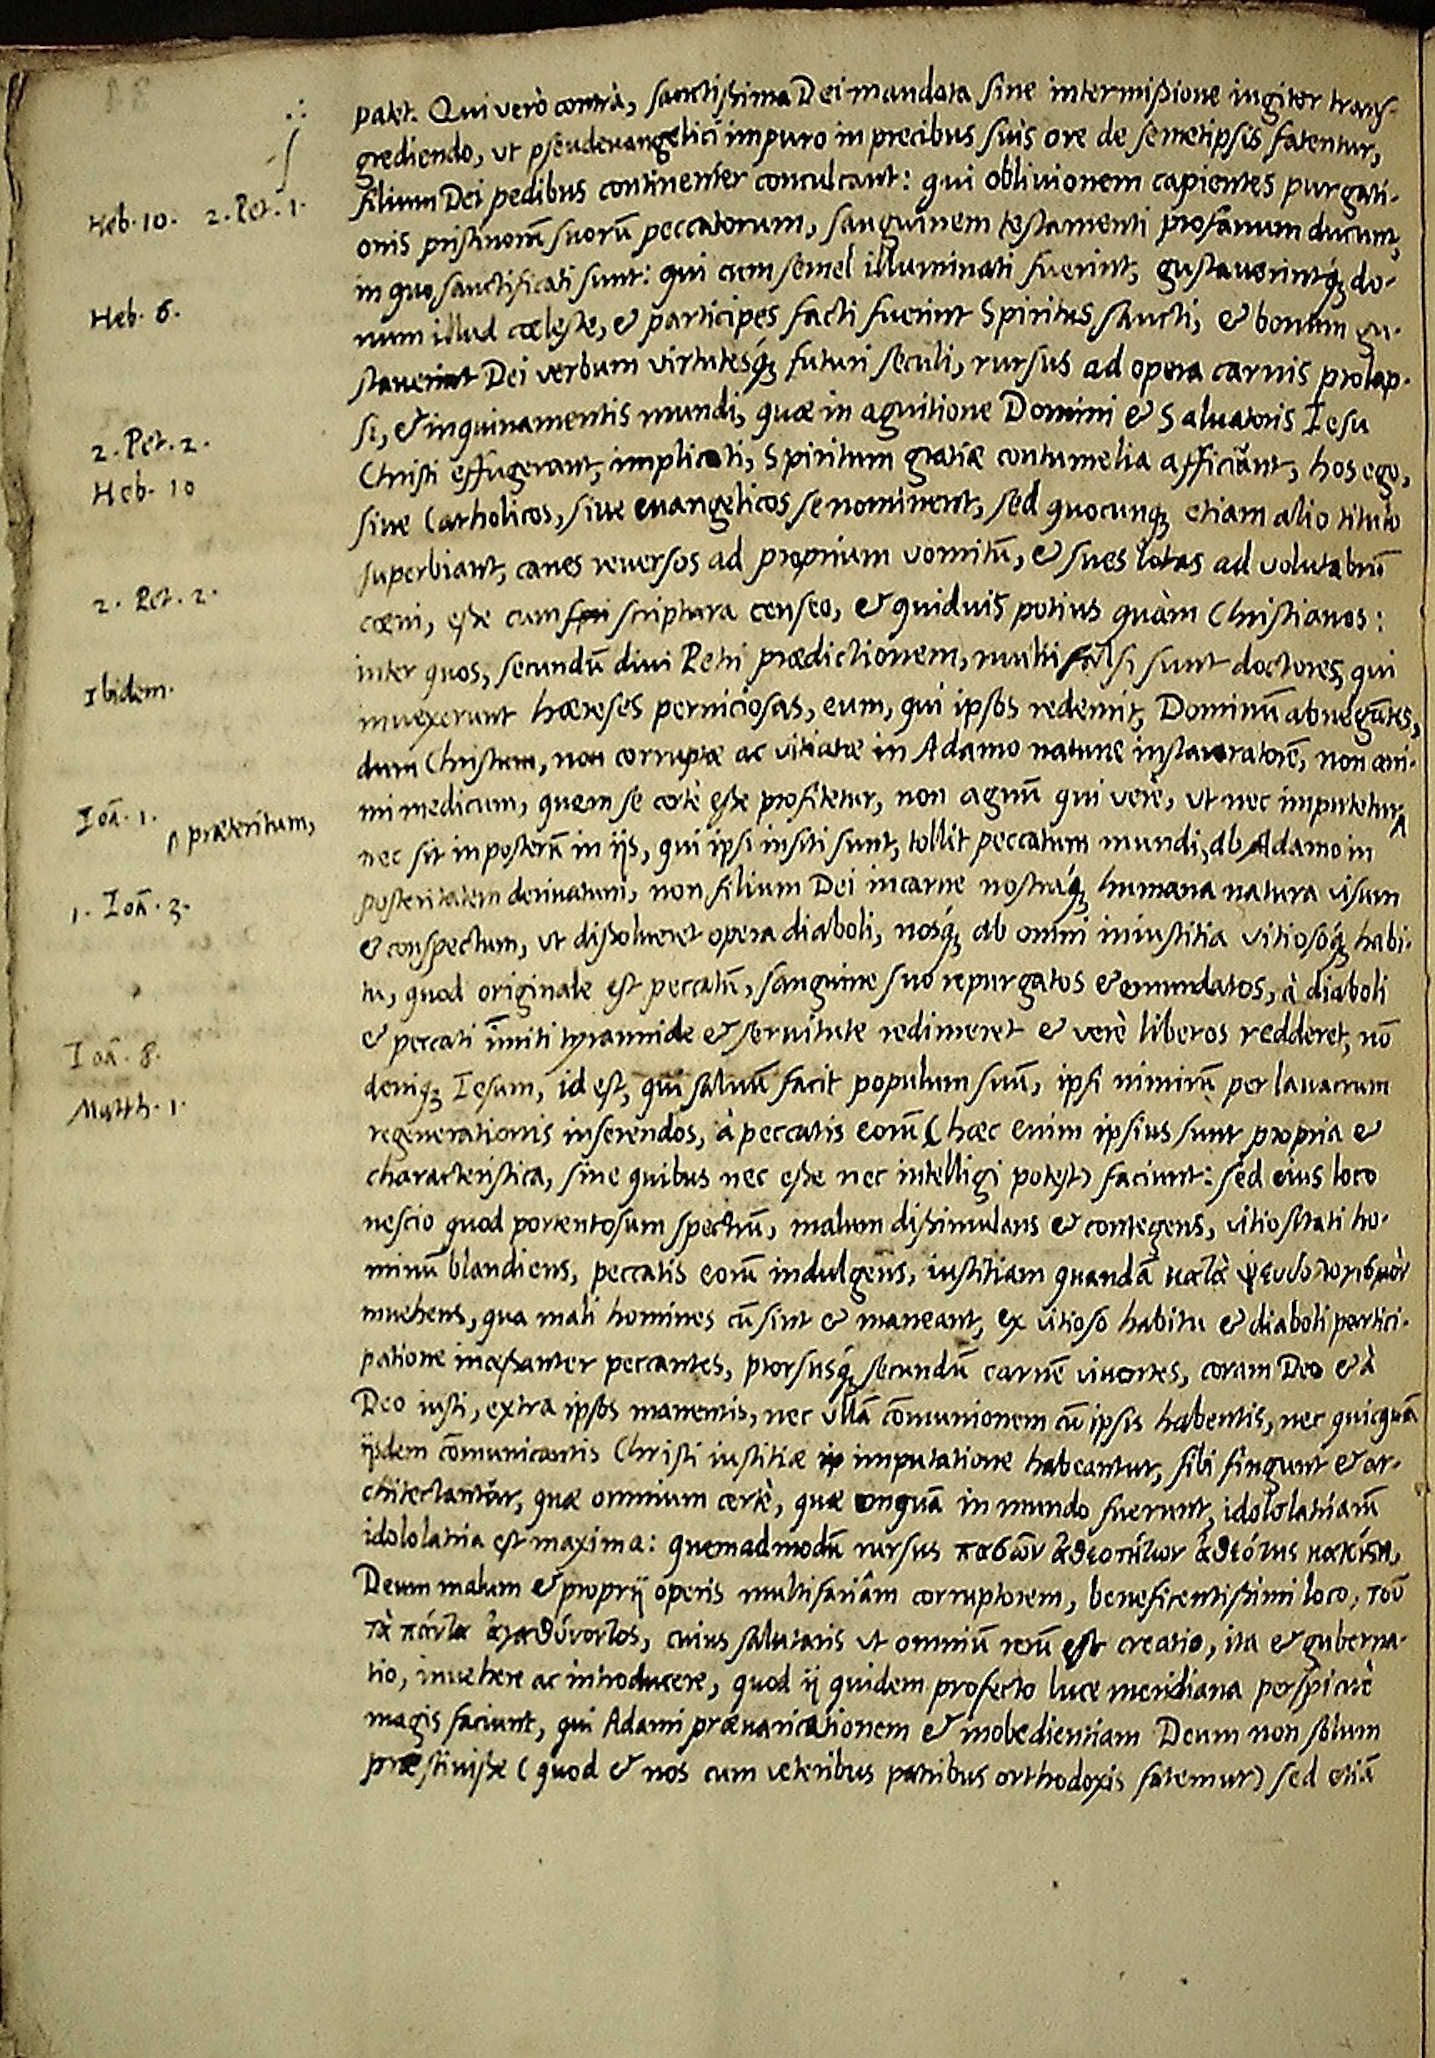 patet. Qui verò contrà, sanctißima Dei mandata sine intermißione iugiter trans-
grediendo, ut pseudeuangelici impuro in precibus suis ore de semetipsis fatentur,
Heb. 10. 2. Pet. 1.
filium Dei pedibus continenter conculcant: qui obliuionem capientes purgati-
onis pristinorū suorū peccatorum, sanguinem testamenti profanum ducunt,
in quo sanctificati sunt: qui cum semel illuminati fuerint, gustauerintq́ꝫ do-
Heb. 6.
num illud cœleste, & participes facti fuerint Spiritus sancti, & bonum gu-
stauerint Dei verbum virtutesq́ꝫ futuri seculi, rursus ad opera carnis prolap-
si, & inquinamentis mundi, quæ in agnitione Domini & Saluatoris Iesu
2. Pet. 2.
Heb. 10
Christi effugerant, implicati, Spiritum gratiæ contumelia afficiūnt, hos ego,
siue Catholicos, siue euangelicos se nominent, sed quocunqꝫ etiam alio titulo
superbiant, canes reuersos ad proprium vomitū, & sues lotas ad volutabrū
2. Pet. 2.
cœni, eße cum scriptura censeo, & quiduis potius quàm Christianos:
inter quos, secundū diui Petri prædictionem, multi falsi sunt doctores, qui
Ibidem.
inuexerunt hæreses perniciosas, eum, qui ipsos redemit, Dominū abnegātes,
dum Christum, non corruptæ ac vitiatæ in Adamo naturæ instauratorē, non ani-
mi medicum, quem se certè eße profitetur, non agnū qui verè, ut nec imputetur ʌ
Ioā. 1. ʌ præteritum,
nec sit in posterū in ijs, qui ipsi insiti sunt, tollit peccatum mundi, ab Adamo in
posteritatem deriuatum, non filium Dei in carne nostraq́ꝫ humana natura visum
1. Ioā. 3.
& conspectum, ut dißolueret opera diaboli, nosq́ꝫ ab omni iniustitia vitiosoq́ꝫ habi-
tu, quod originale est peccatū, sanguine suo repurgatos & emundatos, à diaboli
& peccati īmiti tyrannide & seruitute redimeret & verè liberos redderet, nō
Ioā. 8.
Matth. 1.
deniqꝫ Iesum, id est, qui saluū facit populum suū, ipsi nimirū per lauacrum
regenerationis inserendos, à peccatis eorū (hæc enim ipsius sunt propria &
characteristica, sine quibus nec eße nec intelligi potest) faciunt: sed eius loco
nescio quod portentosum spectrū, malum dißimulans & contegens, vitiositati ho-
minū blandiens, peccatis eorū indulgens, iustitiam quandā κατὰ ψευδολογισμὸν
inuehens, qua mali homines cū sint & maneant, ex vitioso habitu & diaboli partici-
patione inceßanter peccantes, prorsusq́ꝫ secundū carnē viuentes, coram Deo & à
Deo iusti, extra ipsos manentis, nec ullā com̄unionem cū ipsis habentis, nec quicquā
ijsdem com̄unicantis Christi iustitiæ imputatione habeantur, sibi fingunt & ar-
chitectantur, quæ omnium certè, quæ unquā in mundo fuerunt, idololatriarū
idololatria est maxima: quemadmodū rursus πασῶν ἀθεοτήτων ἀθεότης κακίστη,
Deum malum & proprij operis multifariàm corruptorem, beneficentißimi loco, τοῦ
τὰ πάντα ἀγαθύνοντος, cuius salutaris ut omniū rerū est creatio, ita & guberna-
tio, inuehere ac introducere, quod ij quidem profecto luce meridiana perspicuè
magis faciunt, qui Adami præuaricationem & inobedientiam Deum non solum
præsciuiße (quod & nos cum veteribus patribus orthodoxis fatemur) sed etiā